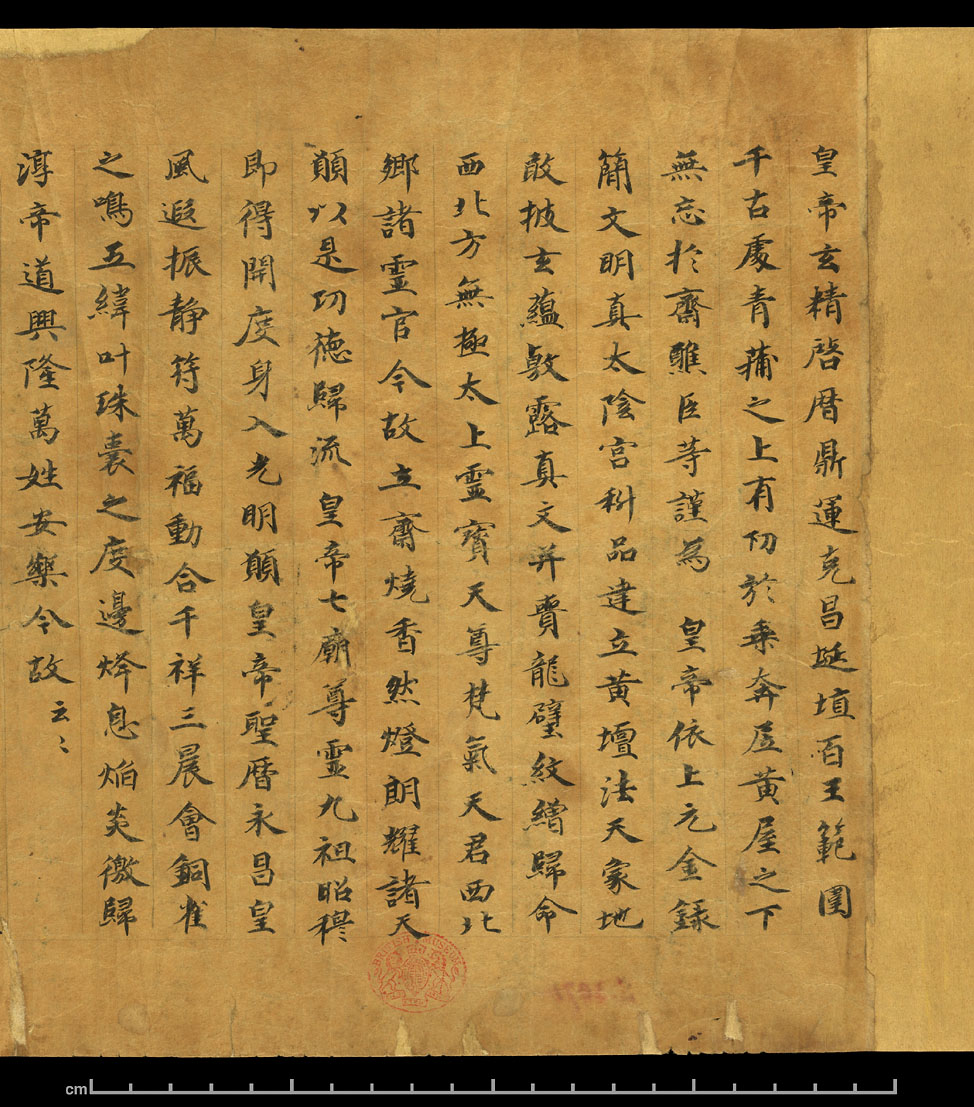 皇帝玄精啓曆鼎運克昌埏埴百王範圍
千古處青蒲之上有切於乘奔居黄屋之下
無忘於齋醮臣等謹為 皇帝依上元金錄
簡文明真太陰宮科品建立黄壇法天象地
敢披玄蘊敷露真文并賷龍璧紋繒歸命
西北方無極太上靈寳天尊梵氣天君西北
鄉諸靈官今故立齋燒香然燈朗耀諸天
願以是功徳歸流 皇帝七廟尊靈九祖昭穆
即得開度身入光明願皇帝聖曆永昌皇
風遐振静符萬福動合千祥三晨會銅雀
之鳴五緯叶珠囊之度邊烽息焰炎徼歸
淳帝道興隆萬姓安樂今故云〻
BRITISH MUSEUM
cm